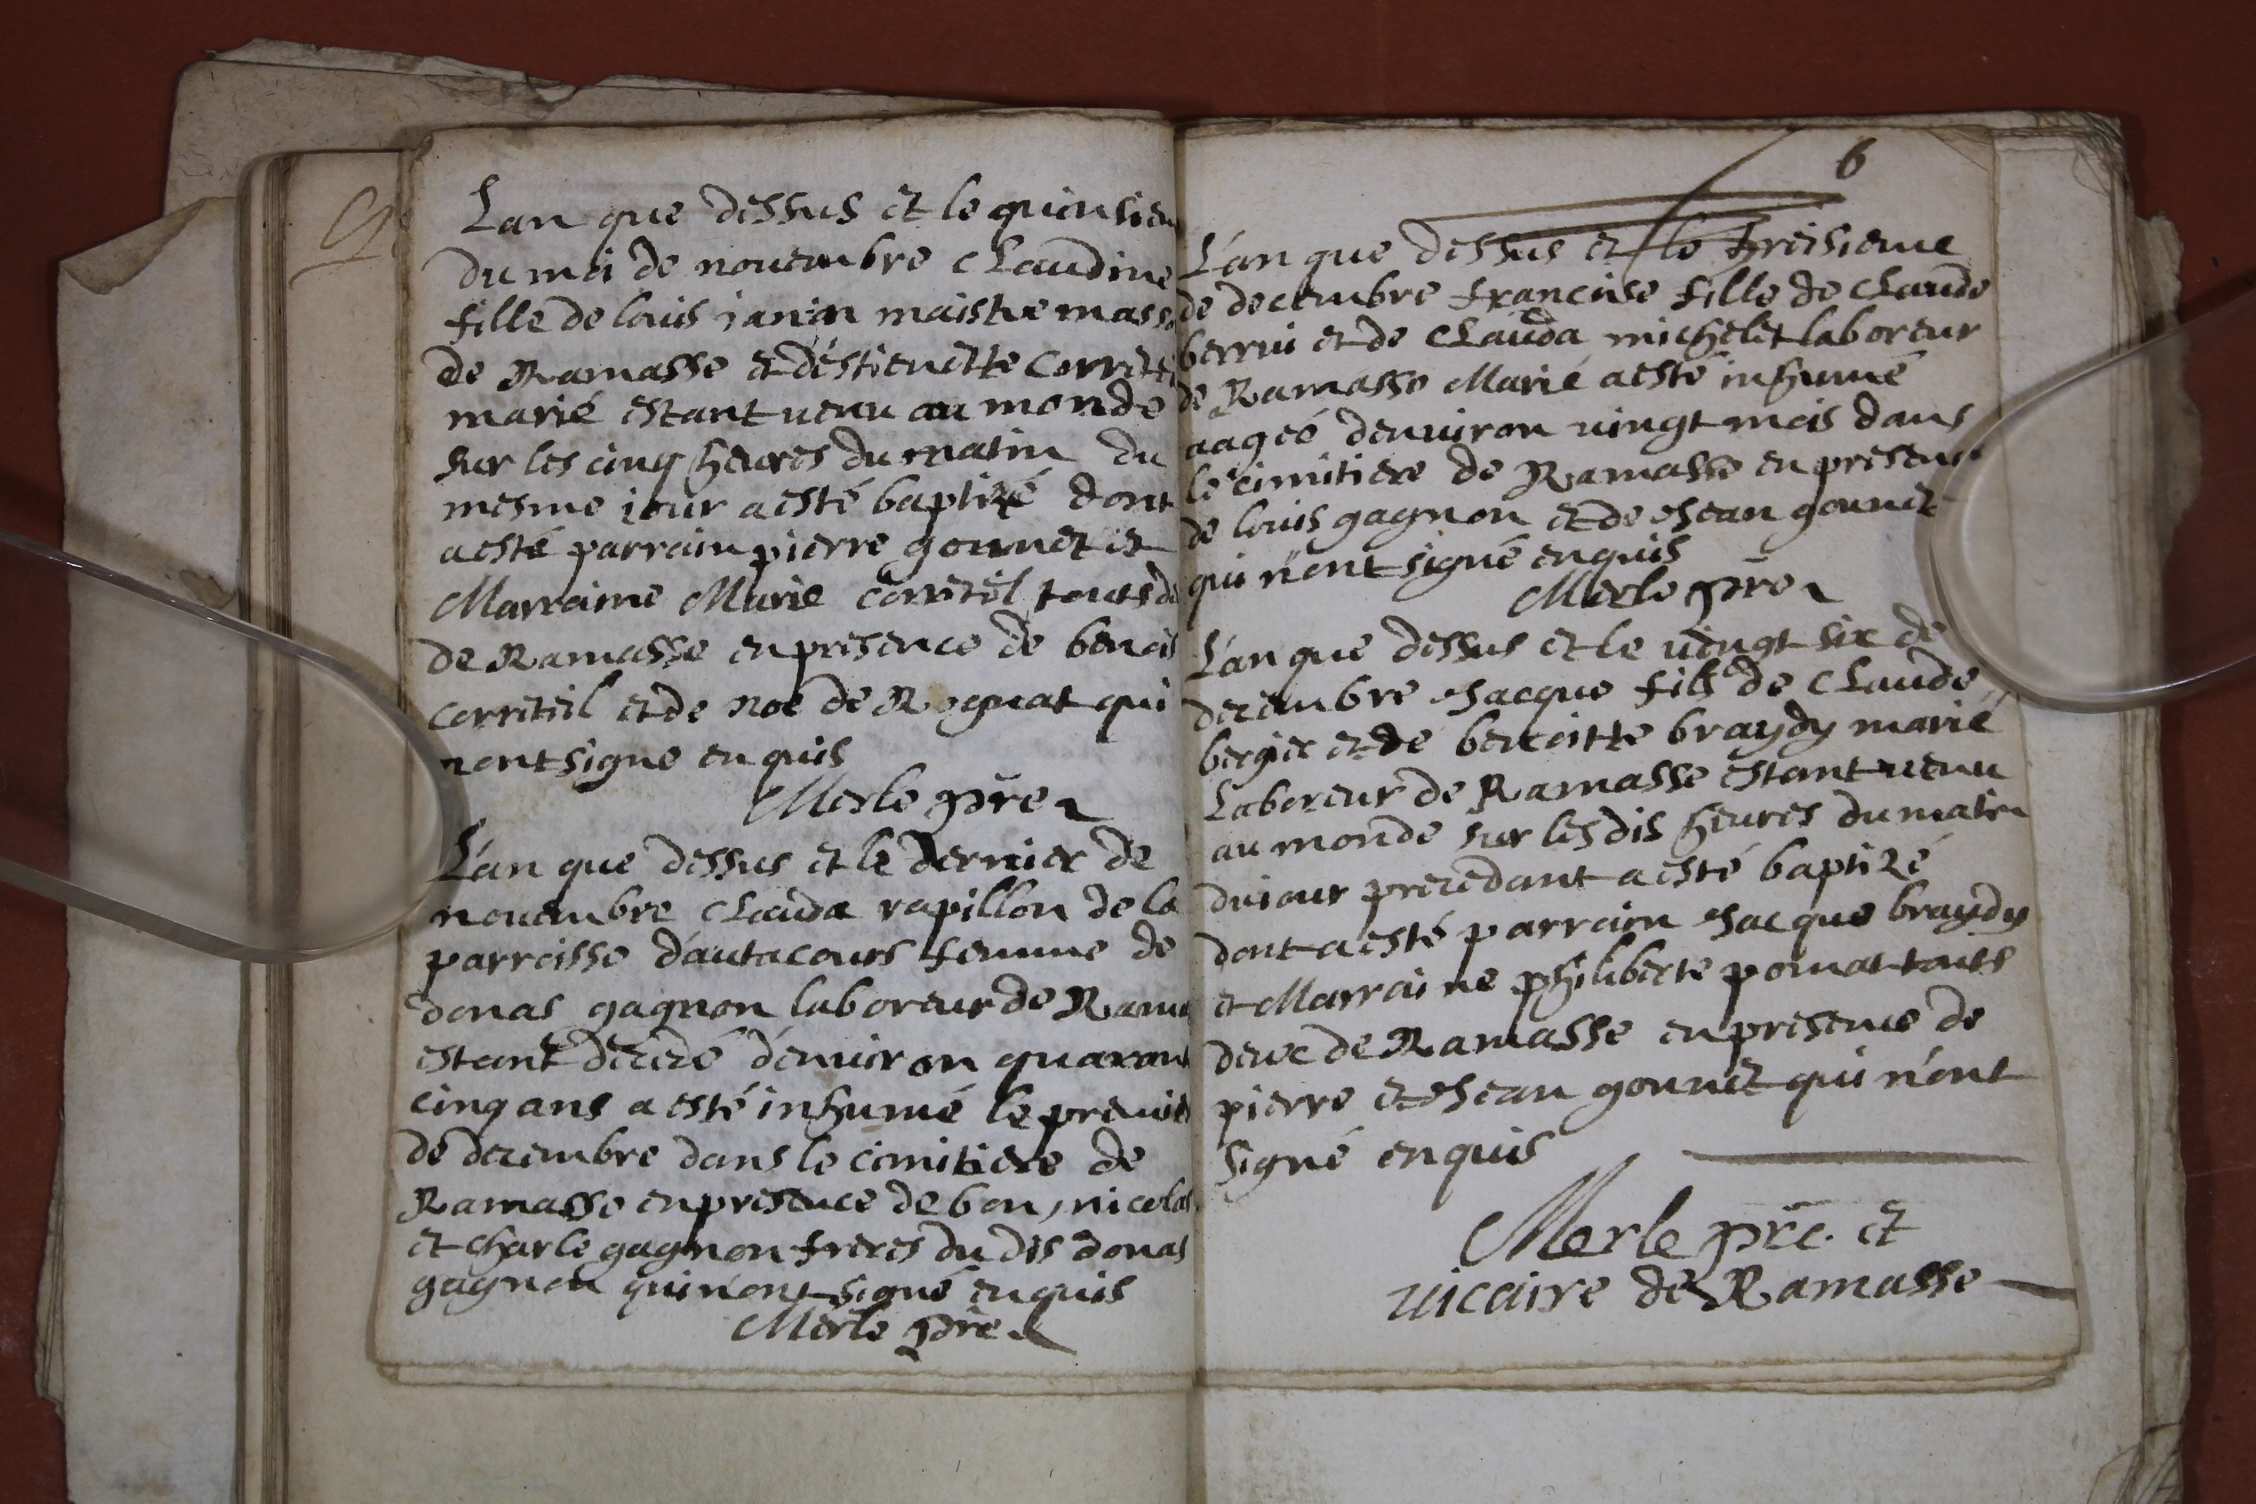 Lan que dessus et le quinsiem
du moi de nouembre Claudine
fille de louis janin maistre mass
de Ramasse et d'estienette Correte
marié estant venu au monde
sur les cinq heures du matin du
mesme jour a esté baptizé dont
a esté parrain pierre gounet et
Marraine Marie corretél touts d
de Ramasse en presence de benoi
correteil et de noé de Rognat qui
nont signe enquis
Merle p̄re
L'an que dessus et le dernier de
nouembre Claúda rapillon de la
parroisse d'autacours femme de
donas gagnon laboreur de Rama
estant decedé d'enuiron quarant
cinq ans a esté inhumé le premie
de decembre dans le cimitiere de
Ramasse en presence de bon, nicolas
et charle gagnon freres du dis donas
gagnon qui n'ont signé enquis
Merle p̄re
6
L'an que dessus et le treisieme
de decembre francoise fille de Claude
berrui et de Claúda michelet laboreur
de Ramasse Marié a esté inhumé
aageé d'enuiron uingt mois dans
le cimitiere de Ramasse en presence
de louis gagnon et de Jean gounet
qui n'ont signé enquis
Merle p̄re
L'an que dessus et le uingt six de
decembre Jacque fils de Claude
bergier et de benoitte braydy marié
Laboreur de Ramasse estant uenu
au monde sur les dis heures du matin
du iour precedant a esté baptizé
dont a esté parrain Jacque braydy
et Marraine philiberte pomat touts
deux de Ramasse en presence de
pierre et Jean gounet qui n'ont
signé enquis
Merle p̄re. et
uicaire de Ramasse